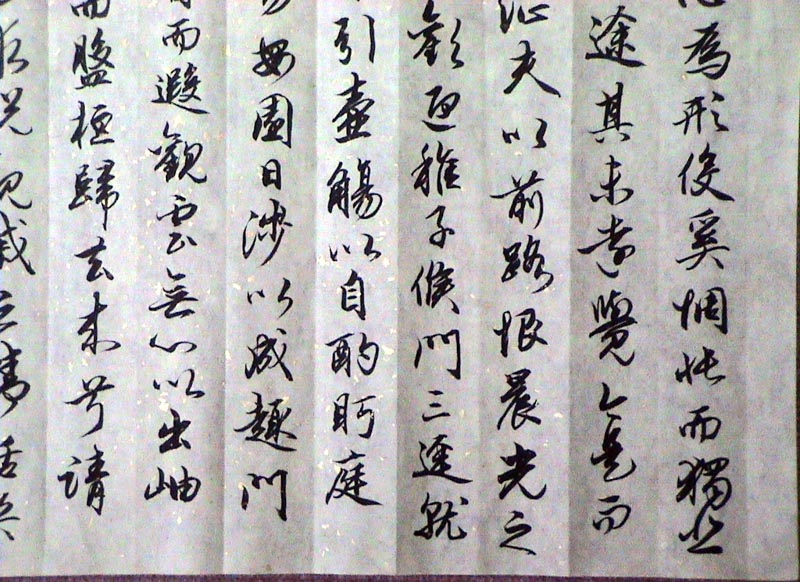 為形役奚惆悵而獨悲
途其未遠覺今是而
征夫以前路恨晨光之
歡迎稚子候門三逕就
引壺觴以自酌眄庭
易安園日涉以成趣門
而遐觀雲無心以出岫
而盤桓歸去來兮請
悅親戚之情話